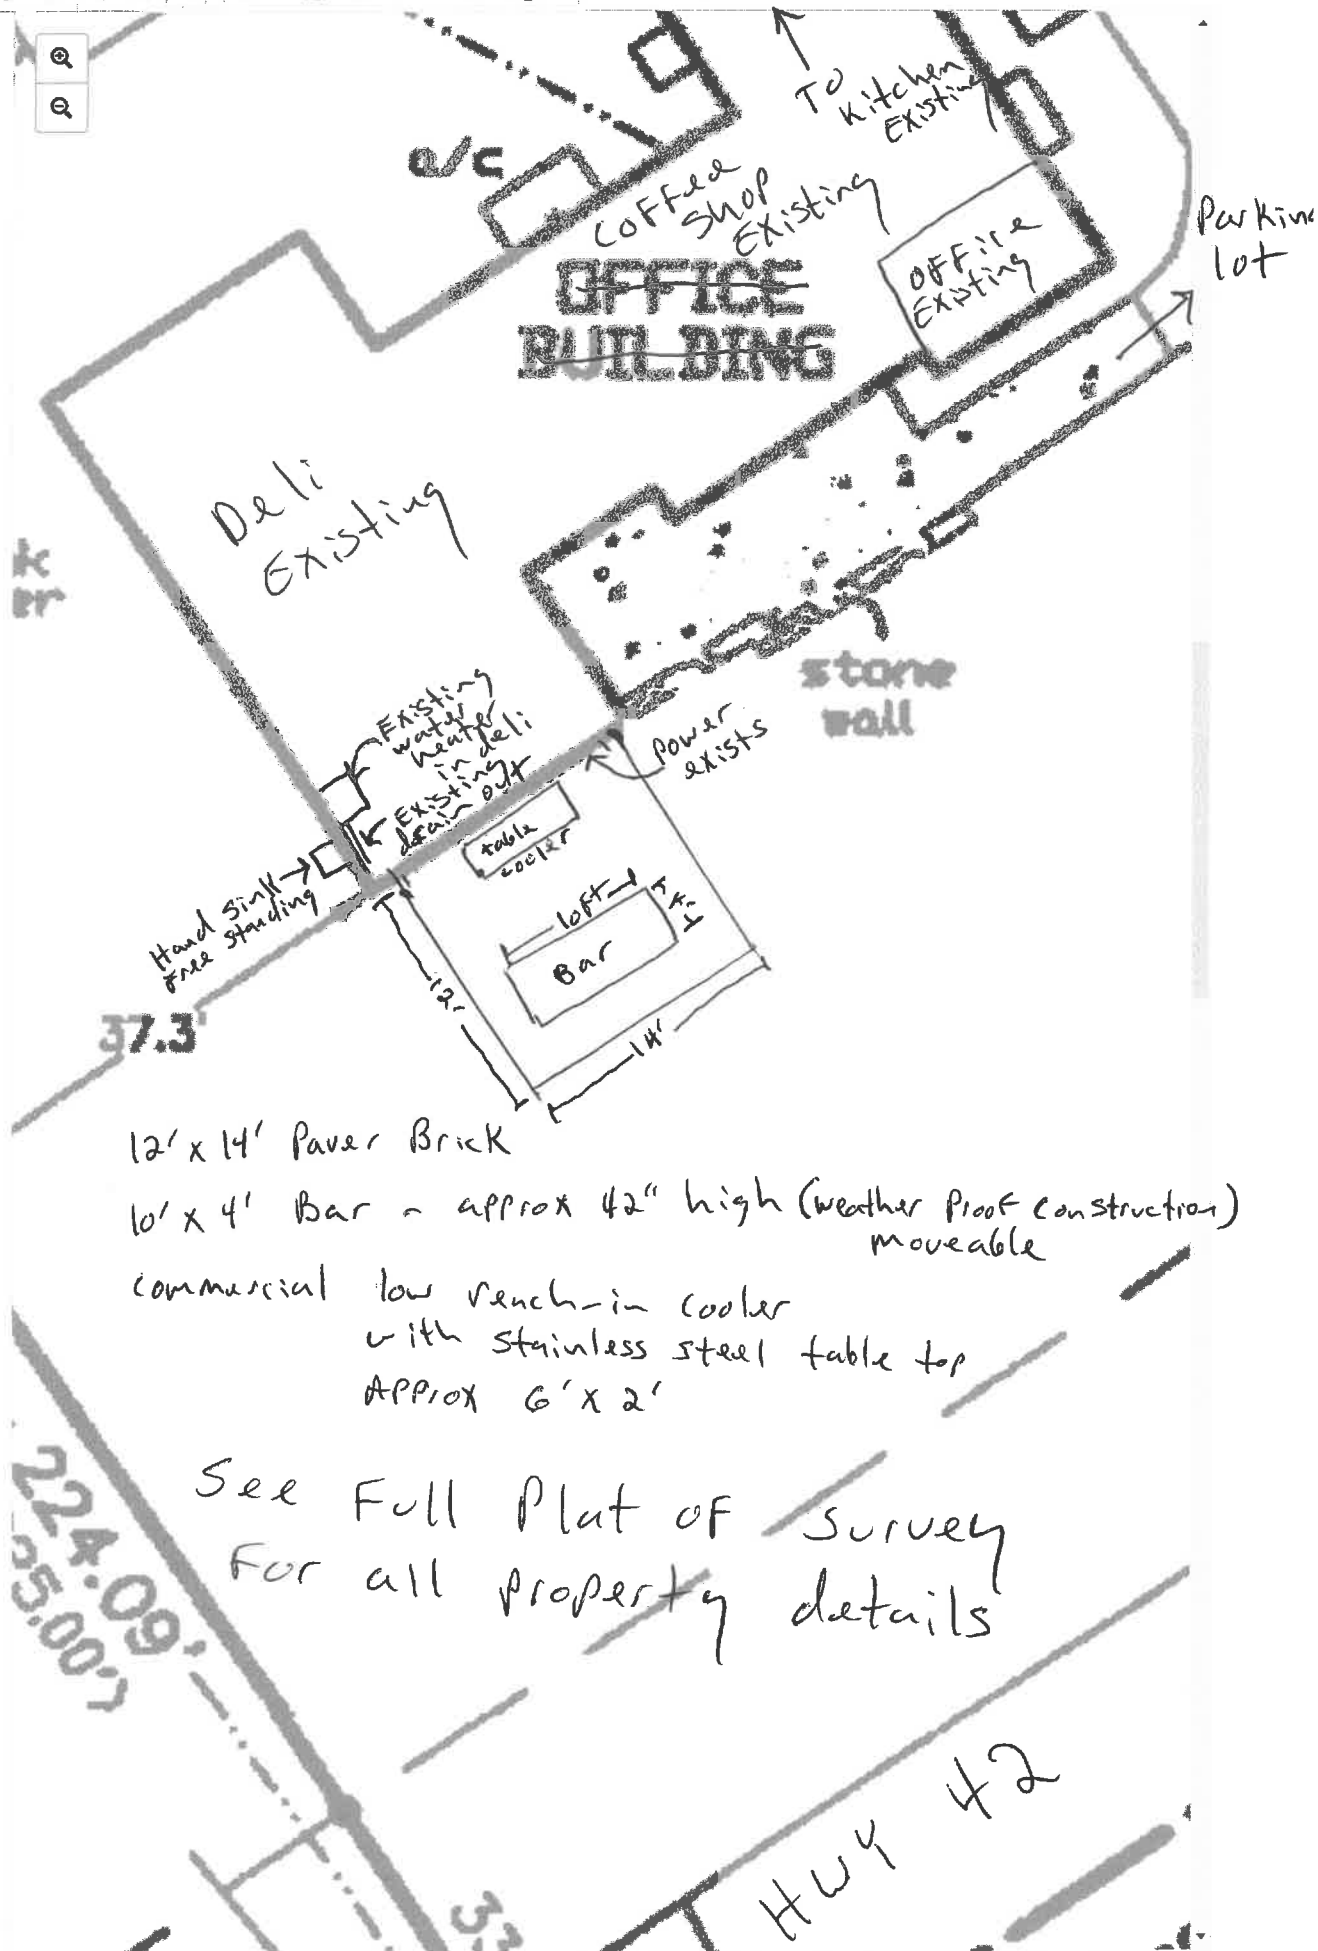 a/c
TO
Kitchen
Existing
Coffee
Shop
Existing
OFFICE
BUILDING
Office
Existing
Parking
lot
Deli
Existing
stone
wall
Existing
water
heater
in deli
Existing
drain out
Power
exists
table
cooler
Hand sink
Free standing
10FT
4'
Bar
12'
14'
37.3'
12' x 14' Paver Brick
10' x 4' Bar - approx 42" high (weather Proof construction)
moveable
commercial low reach-in cooler
with stainless steel table top
Approx 6' x 2'
See Full Plat of survey
For all property details
224.09'
HWY 42